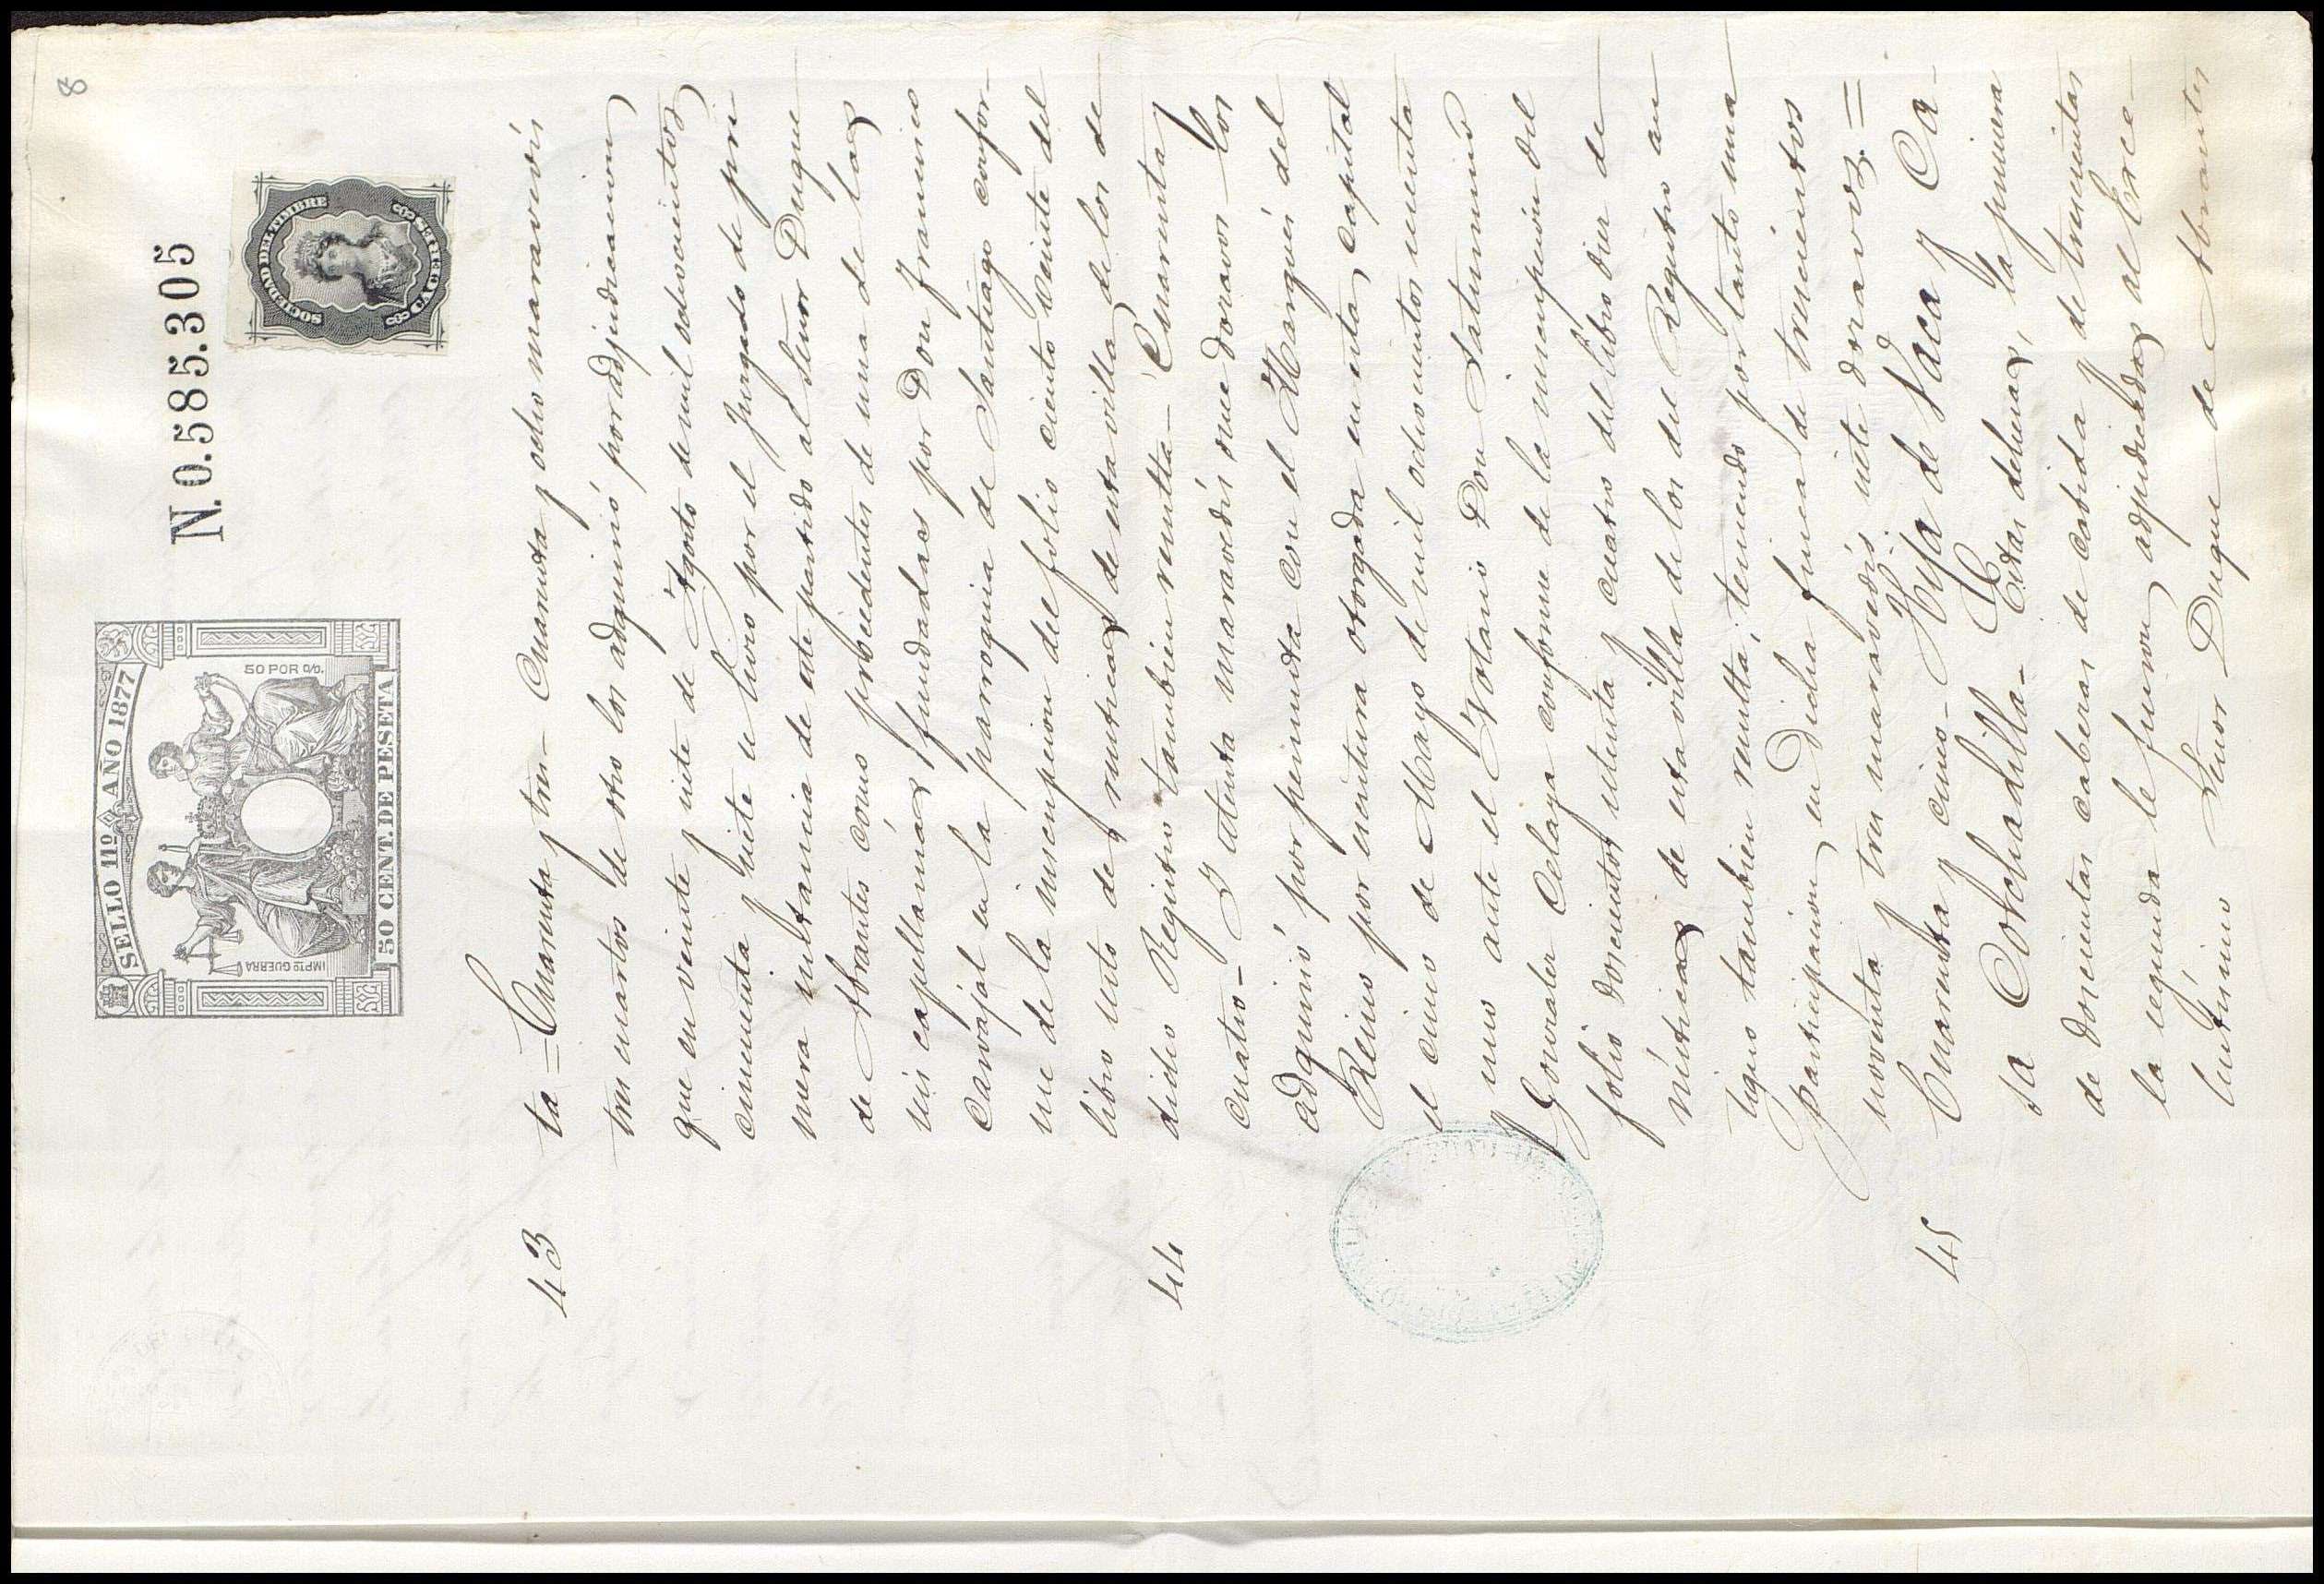 8
N. 0.585.305
SOCIEDAD DEL TIMBRE
SELLO 11º AÑO 1877
IMPTO GUERRA
50 POR 0/0.
50 CENT. DE PESETA
43
ta = Cuarenta y tres - Cuarenta y ocho maravedís
tres cuartos de otro los adquirió por adjudicacion
que en veinte y siete de Agosto de mil ochocientos
cincuenta y siete se hizo por el Juzgado de pri
mera instancia de este partido al Señor Duque
de Abrantes como procedentes de una de las
seis capellanías fundadas por Don Francisco
Carvajal en la parroquia de Santiago confor-
me de la inscripcion del folio ciento veinte del
libro sesto de rusticas de esta villa de los de
dicho Registro tambien resulta - Cuarenta y
44
cuatro - Y setenta maravedís once doravos los
adquirió por permuta con el Marqués del
Reino por escritura otorgada en esta capital
el cinco de Mayo de mil ochocientos sesenta
y uno ante el Notario Don Saturnino
Gonzalez Celaya conforme de la inscripcion del
folio doscientos setenta y cuatro del libro diez de
rústicas de esta villa de los del Registro an
tiguo tambien resulta, teniendo por tanto una
participacion en dicha finca de trescientos
noventa y tres maravedís siete doravos. =
45
Cuarenta y cinco - Hoja de Vaca y Ca-
sa Corchadilla - Estas dehesas, la primera
de doscientas cabezas de cabida y de trescientas
la segunda le fueron adjudicadas al Exce-
lentísimo Señor Duque de Abrantes